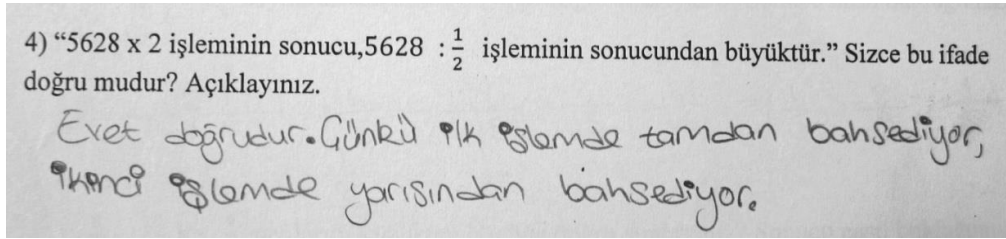 4) “5628 x 2 işleminin sonucu,5628 : 1/2 işleminin sonucundan büyüktür.” Sizce bu ifade
doğru mudur? Açıklayınız.
Evet doğrudur. Çünkü ilk işlemde tamdan bahsediyor,
ikinci işlemde yarısından bahsediyor.